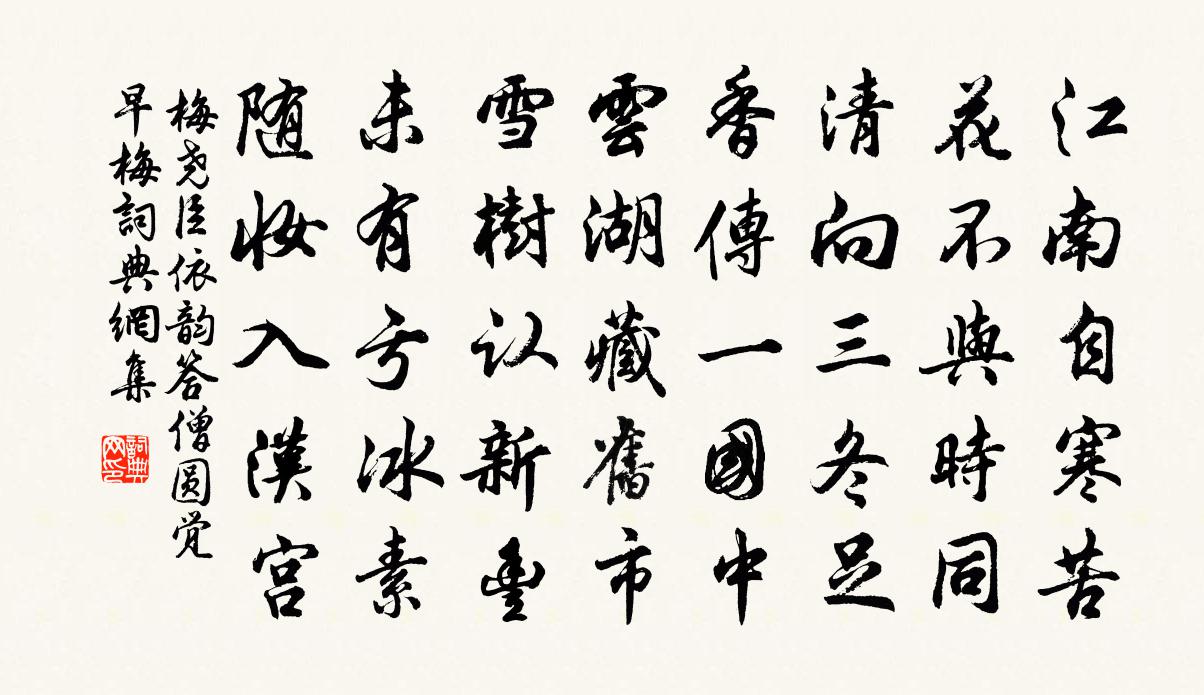 江南自寒苦
花不與時同
清向三冬足
香傳一國中
雲湖藏舊市
雪樹认新豐
未有亏冰素
随妆入漢宫
梅尧臣依韵答僧圆觉
早梅詞典網集
詞典
网印